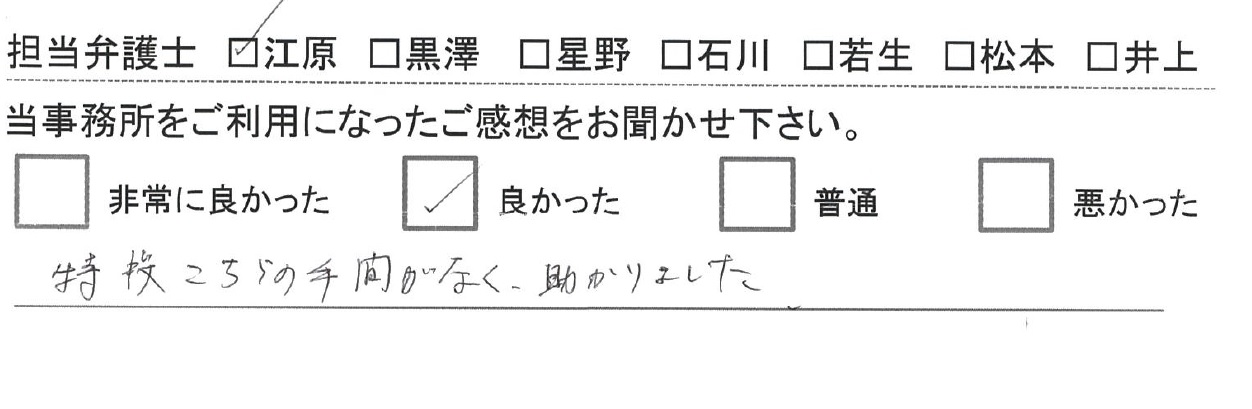 担当弁護士 ☑江原 □黒澤 □星野 □石川 □若生 □松本 □井上
当事務所をご利用になったご感想をお聞かせ下さい。
□ 非常に良かった ☑ 良かった □ 普通 □ 悪かった
特段こちらの手間がなく、助かりました